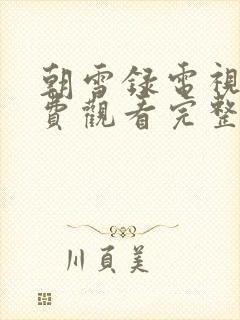 朝雪録電視
費觀看完整
川頁美